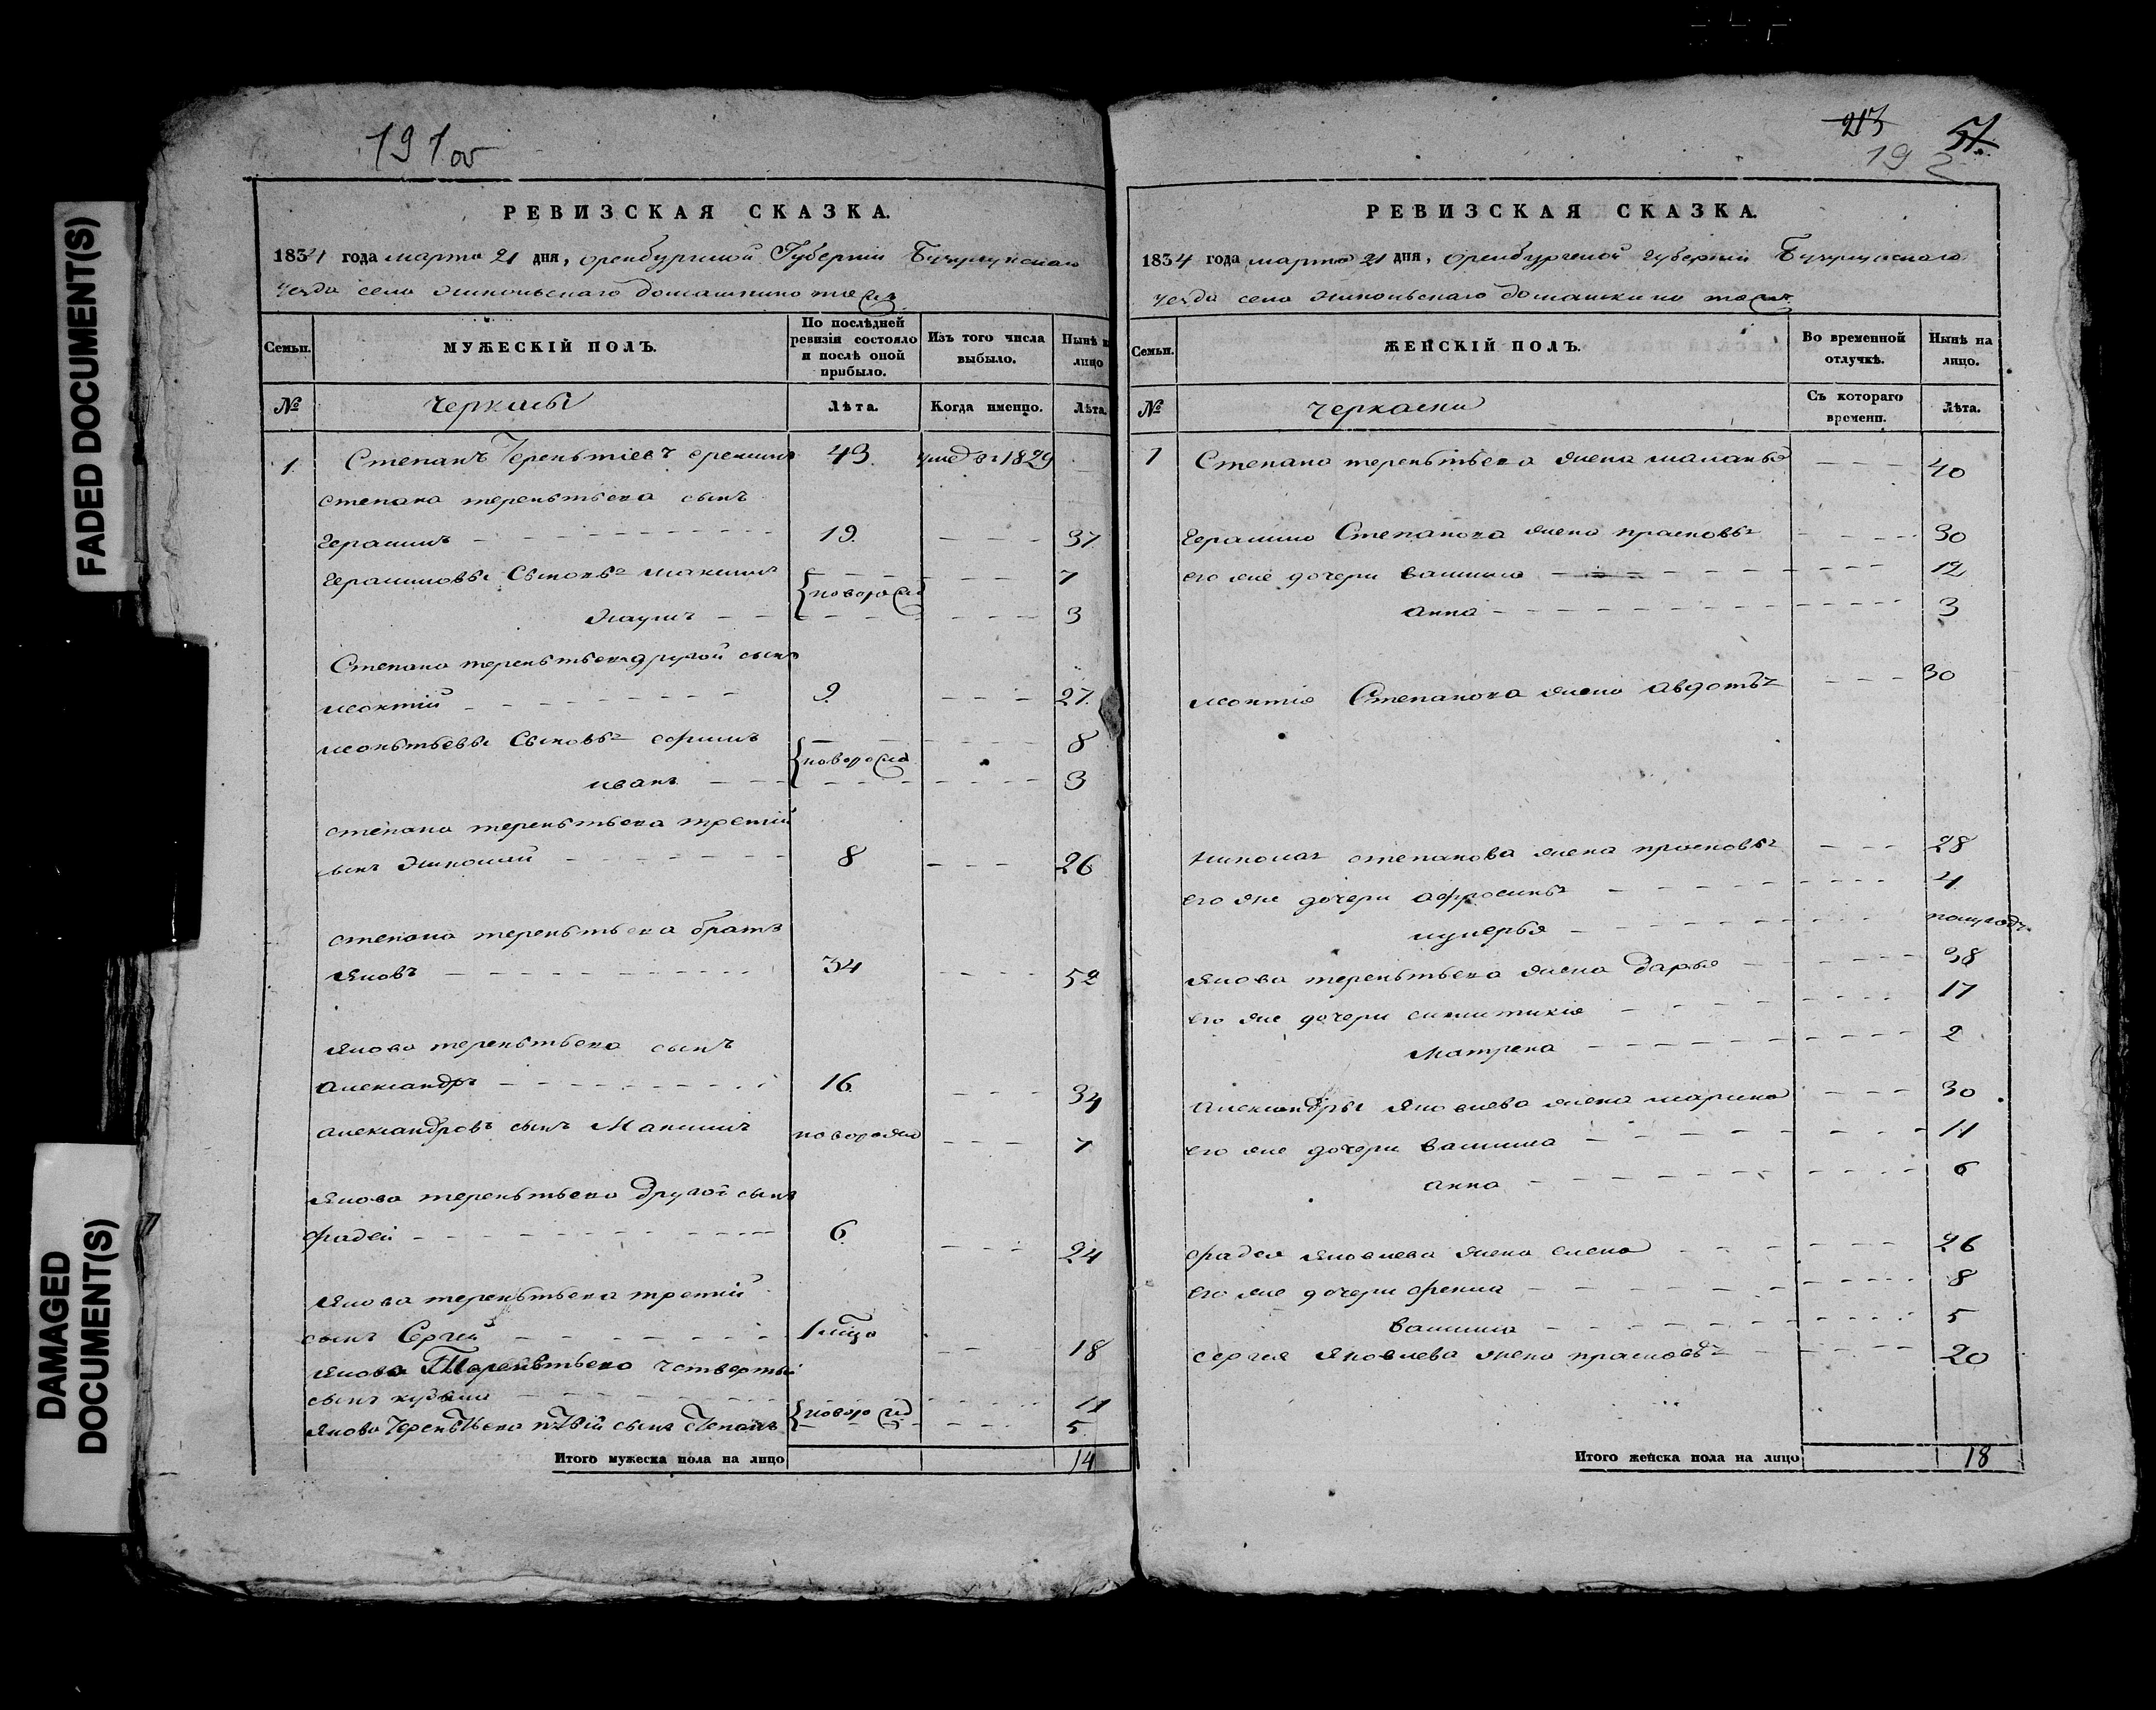 FADED DOCUMENT(S)
DAMAGED
DOCUMENT(S)
191 об
РЕВИЗСКАЯ СКАЗКА.
1834 года марта 21 дня, оренбургской Губернии Бузулуцкаго
уезда села никольскаго домашкино тожъ
Семьи.
МУЖЕСКІЙ ПОЛЪ.
По послѣдней
ревизіи состояло
и послѣ оной
прибыло.
Изъ того числа
выбыло.
Нынѣ на
лицо
№
черкасы
Лѣта.
Когда именно.
Лѣта.
1. Степанъ Терентіевъ 43. умер въ 1829
степана терентьева сынъ
Герасимъ 19. 37
Герасимовы Сыновья максимъ 7
новорожд
3
Степана терентьева другой сынъ
леонтий 9. 27.
леонтьевы Сыновья ефимъ 8
новорожд
иванъ 3
степана терентьева третий
сынъ николай 8 26
степана терентьева братъ
Яковъ 34 52
Якова терентьева сынъ
александръ 16. 34
александровъ сынъ Максимъ новорожд 7
Якова терентьева другой сынъ
фадей 6. 24
Якова терентьева третий
сынъ Сергий 18
Якова Терентьева четвертый
сынъ кузьма 11
новорожд
Якова Терентьева пятый сынъ Степанъ 5
Итого мужеска пола на лицо 14
213 57.
192
РЕВИЗСКАЯ СКАЗКА.
1834 года марта 21 дня, оренбургской губернии Бузулуцкаго
уезда села никольскаго домашкино тожъ
Семьи.
ЖЕНСКІЙ ПОЛЪ.
Во временной
отлучкѣ.
Нынѣ на
лицо.
№
черкаски
Съ котораго
времени.
Лѣта.
1 Степана терентьева жена маланья 40
Герасима Степанова жена прасковья 30
его же дочери васишна 12
анна 3
леонтия Степанова жена авдотья 30
николая степанова жена прасковья 28
его же дочери афросинья 4
лукерья полугода
Якова терентьева жена дарья 38
его же дочери сиклитикия 17
матрена 2
александры Яковлева жена марина 30
его же дочери васишна 11
анна 6
фадея Яковлева жена елена 26
его же дочери фекла 8
васишна 5
сергея Яковлева жена прасковья 20
Итого женска пола на лицо 18